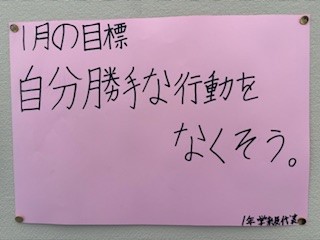 1月の目標
自分勝手な行動を
なくそう。
1年学級代表